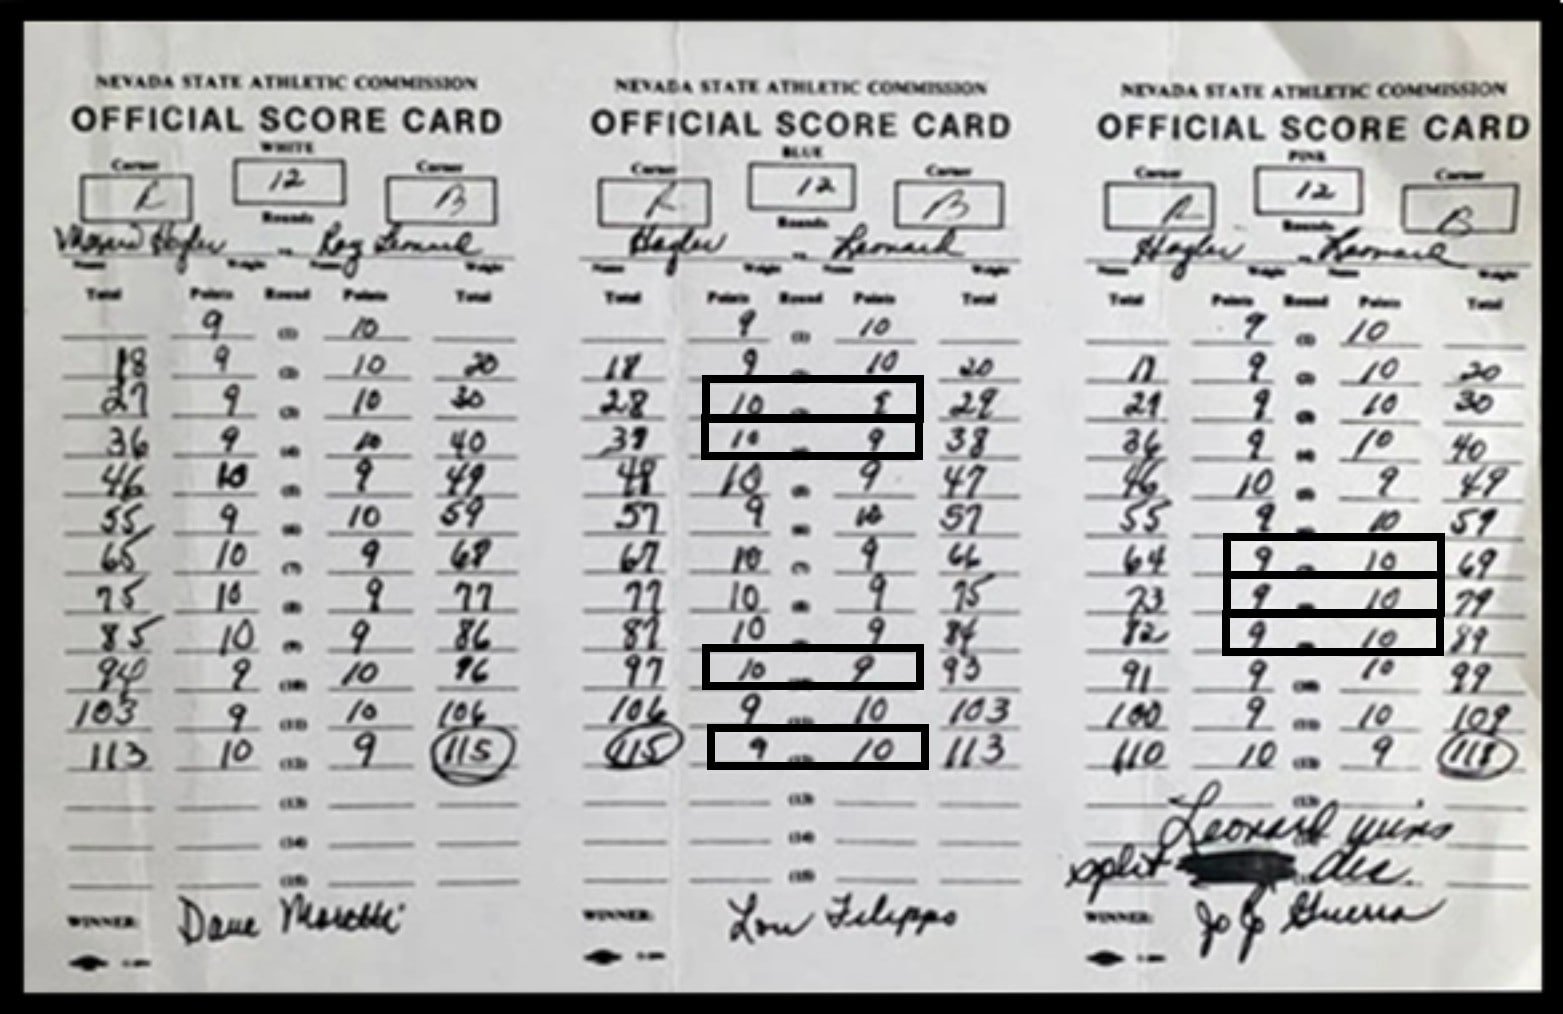 NEVADA STATE ATHLETIC COMMISSION
OFFICIAL SCORE CARD
WHITE
Corner Corner
R 12 B
Rounds
Marvin Hagler - Ray Leonard
Name Weight Name Weight
Total Points Round Points Total
9 (1) 10
18 9 (2) 10 20
27 9 (3) 10 30
36 9 (4) 10 40
46 10 (5) 9 49
55 9 (6) 10 59
65 10 (7) 9 68
75 10 (8) 9 77
85 10 (9) 9 86
94 9 (10) 10 96
103 9 (11) 10 106
113 10 (12) 9 115
(13)
(14)
(15)
WINNER: Dave Moretti
NEVADA STATE ATHLETIC COMMISSION
OFFICIAL SCORE CARD
BLUE
Corner Corner
R 12 B
Rounds
Hagler - Leonard
Name Weight Name Weight
Total Points Round Points Total
9 (1) 10
18 9 10 20
28 10 9 29
38 10 9 38
48 10 9 47
57 9 10 57
67 10 (7) 9 66
77 10 (8) 9 75
87 10 9 84
97 10 9 93
106 9 (11) 10 103
115 9 10 113
(13)
(14)
(15)
WINNER: Lou Filippo
NEVADA STATE ATHLETIC COMMISSION
OFFICIAL SCORE CARD
PINK
Corner Corner
R 12 B
Rounds
Hagler - Leonard
Name Weight Name Weight
Total Points Round Points Total
9 (1) 10
9 (2) 10 20
9 (3) 10 30
36 9 (4) 10 40
46 10 9 49
55 9 10 59
64 9 10 69
73 9 10 79
82 9 10 89
91 9 (10) 10 99
100 9 (11) 10 109
110 10 (12) 9 118
(13)
Leonard wins
split dec.
WINNER: Jo Jo Guerra